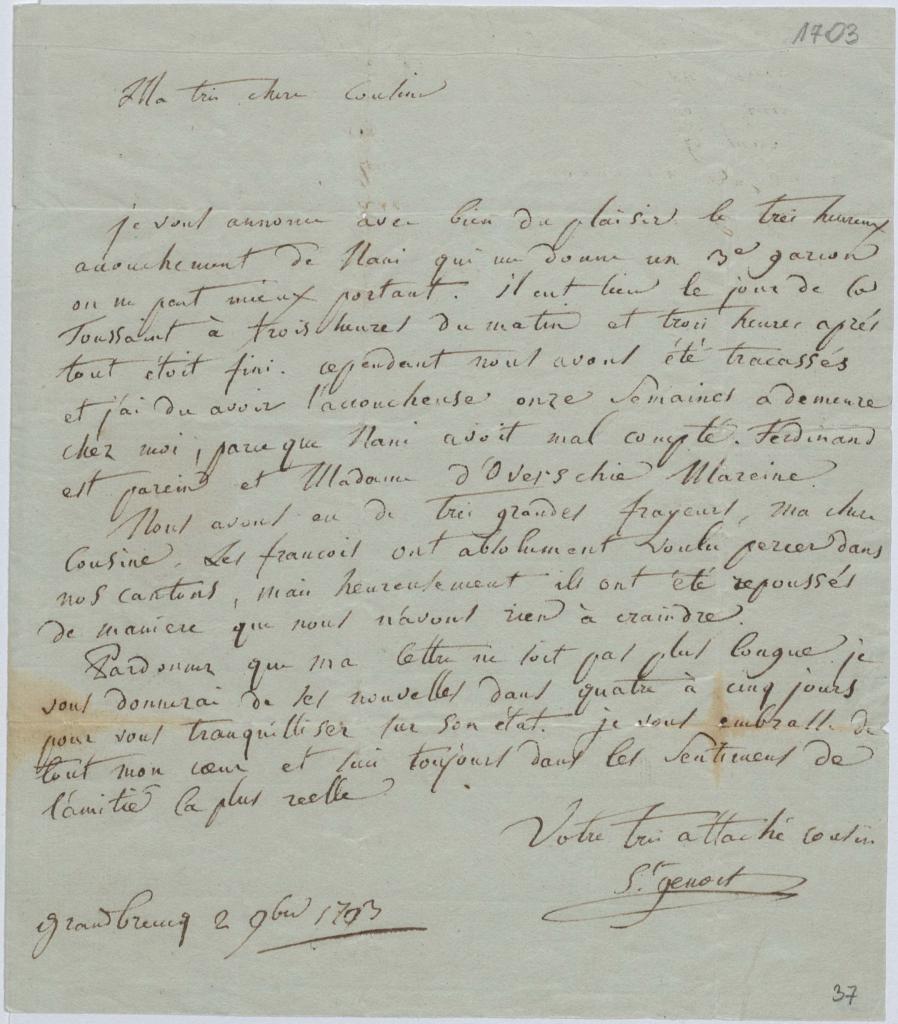 1703
Ma tres chere Cousine
je vous annonce avec bien du plaisir le tres heureux
accouchement de Nani qui me donne un 3e garcon
on ne peut mieux portant. il eut lieu le jour de la
Toussaint à trois heures du matin et trois heures après
tout étoit fini. cependant nous avons été tracassés
et j'ai du avoir l'accoucheuse onze semaines a demeure
chez moi, parceque Nani avoit mal compté. Ferdinand
est parein et Madame d'Overschie Mareine.
Nous avons eu de tres grandes frayeurs, ma chere
Cousine. Les francois ont absolument voulu percer dans
nos cantons, mais heureusement ils ont été repoussés
de maniere que nous n'avons rien à craindre.
Pardonnez que ma lettre ne soit pas plus longue je
vous donnerai de ses nouvelles dans quatre à cinq jours
pour vous tranquilliser sur son état. je vous embrasse de
tout mon cœur et suis toujours dans les sentimens de
l'amitié la plus reelle
Votre tres attaché cousin
St genois
grandbreucq 2 9bre 1793
37